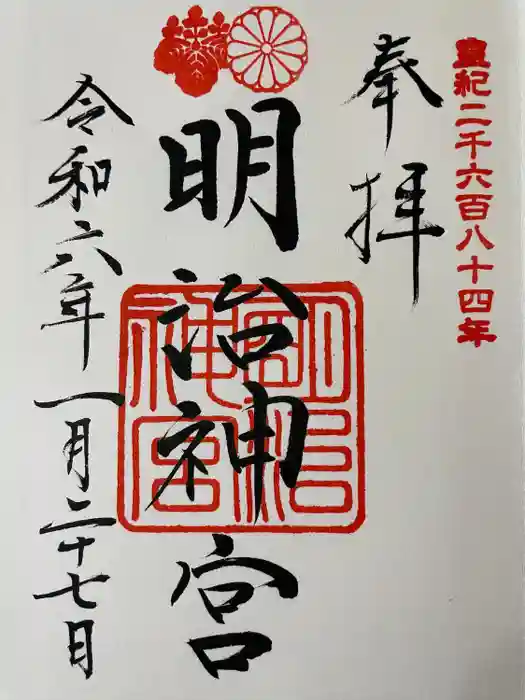 皇紀二千六百八十四年
奉拝
明治神宮
明治神宮
令和六年一月二十七日